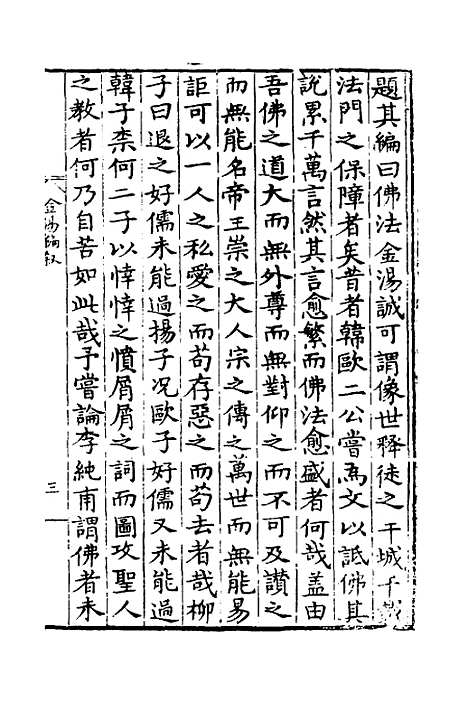 題其編曰佛法金湯誠可謂像世釋徒之干城千載
法門之保障者矣昔者韓歐二公嘗為文以詆佛其
說累千萬言然其言愈繁而佛法愈盛者何哉盖由
吾佛之道大而無外尊而無對仰之而不可及讃之
而無能名帝王崇之大人宗之傳之萬世而無能易
詎可以一人之私愛之而苟存惡之而苟去者哉柳
子曰退之好儒未能過揚子况歐子好儒又未能過
韓子柰何二子以悻悻之憤屑屑之詞而圖攻聖人
之教者何乃自苦如此哉予嘗論李純甫謂佛者未
金湯編叙
三